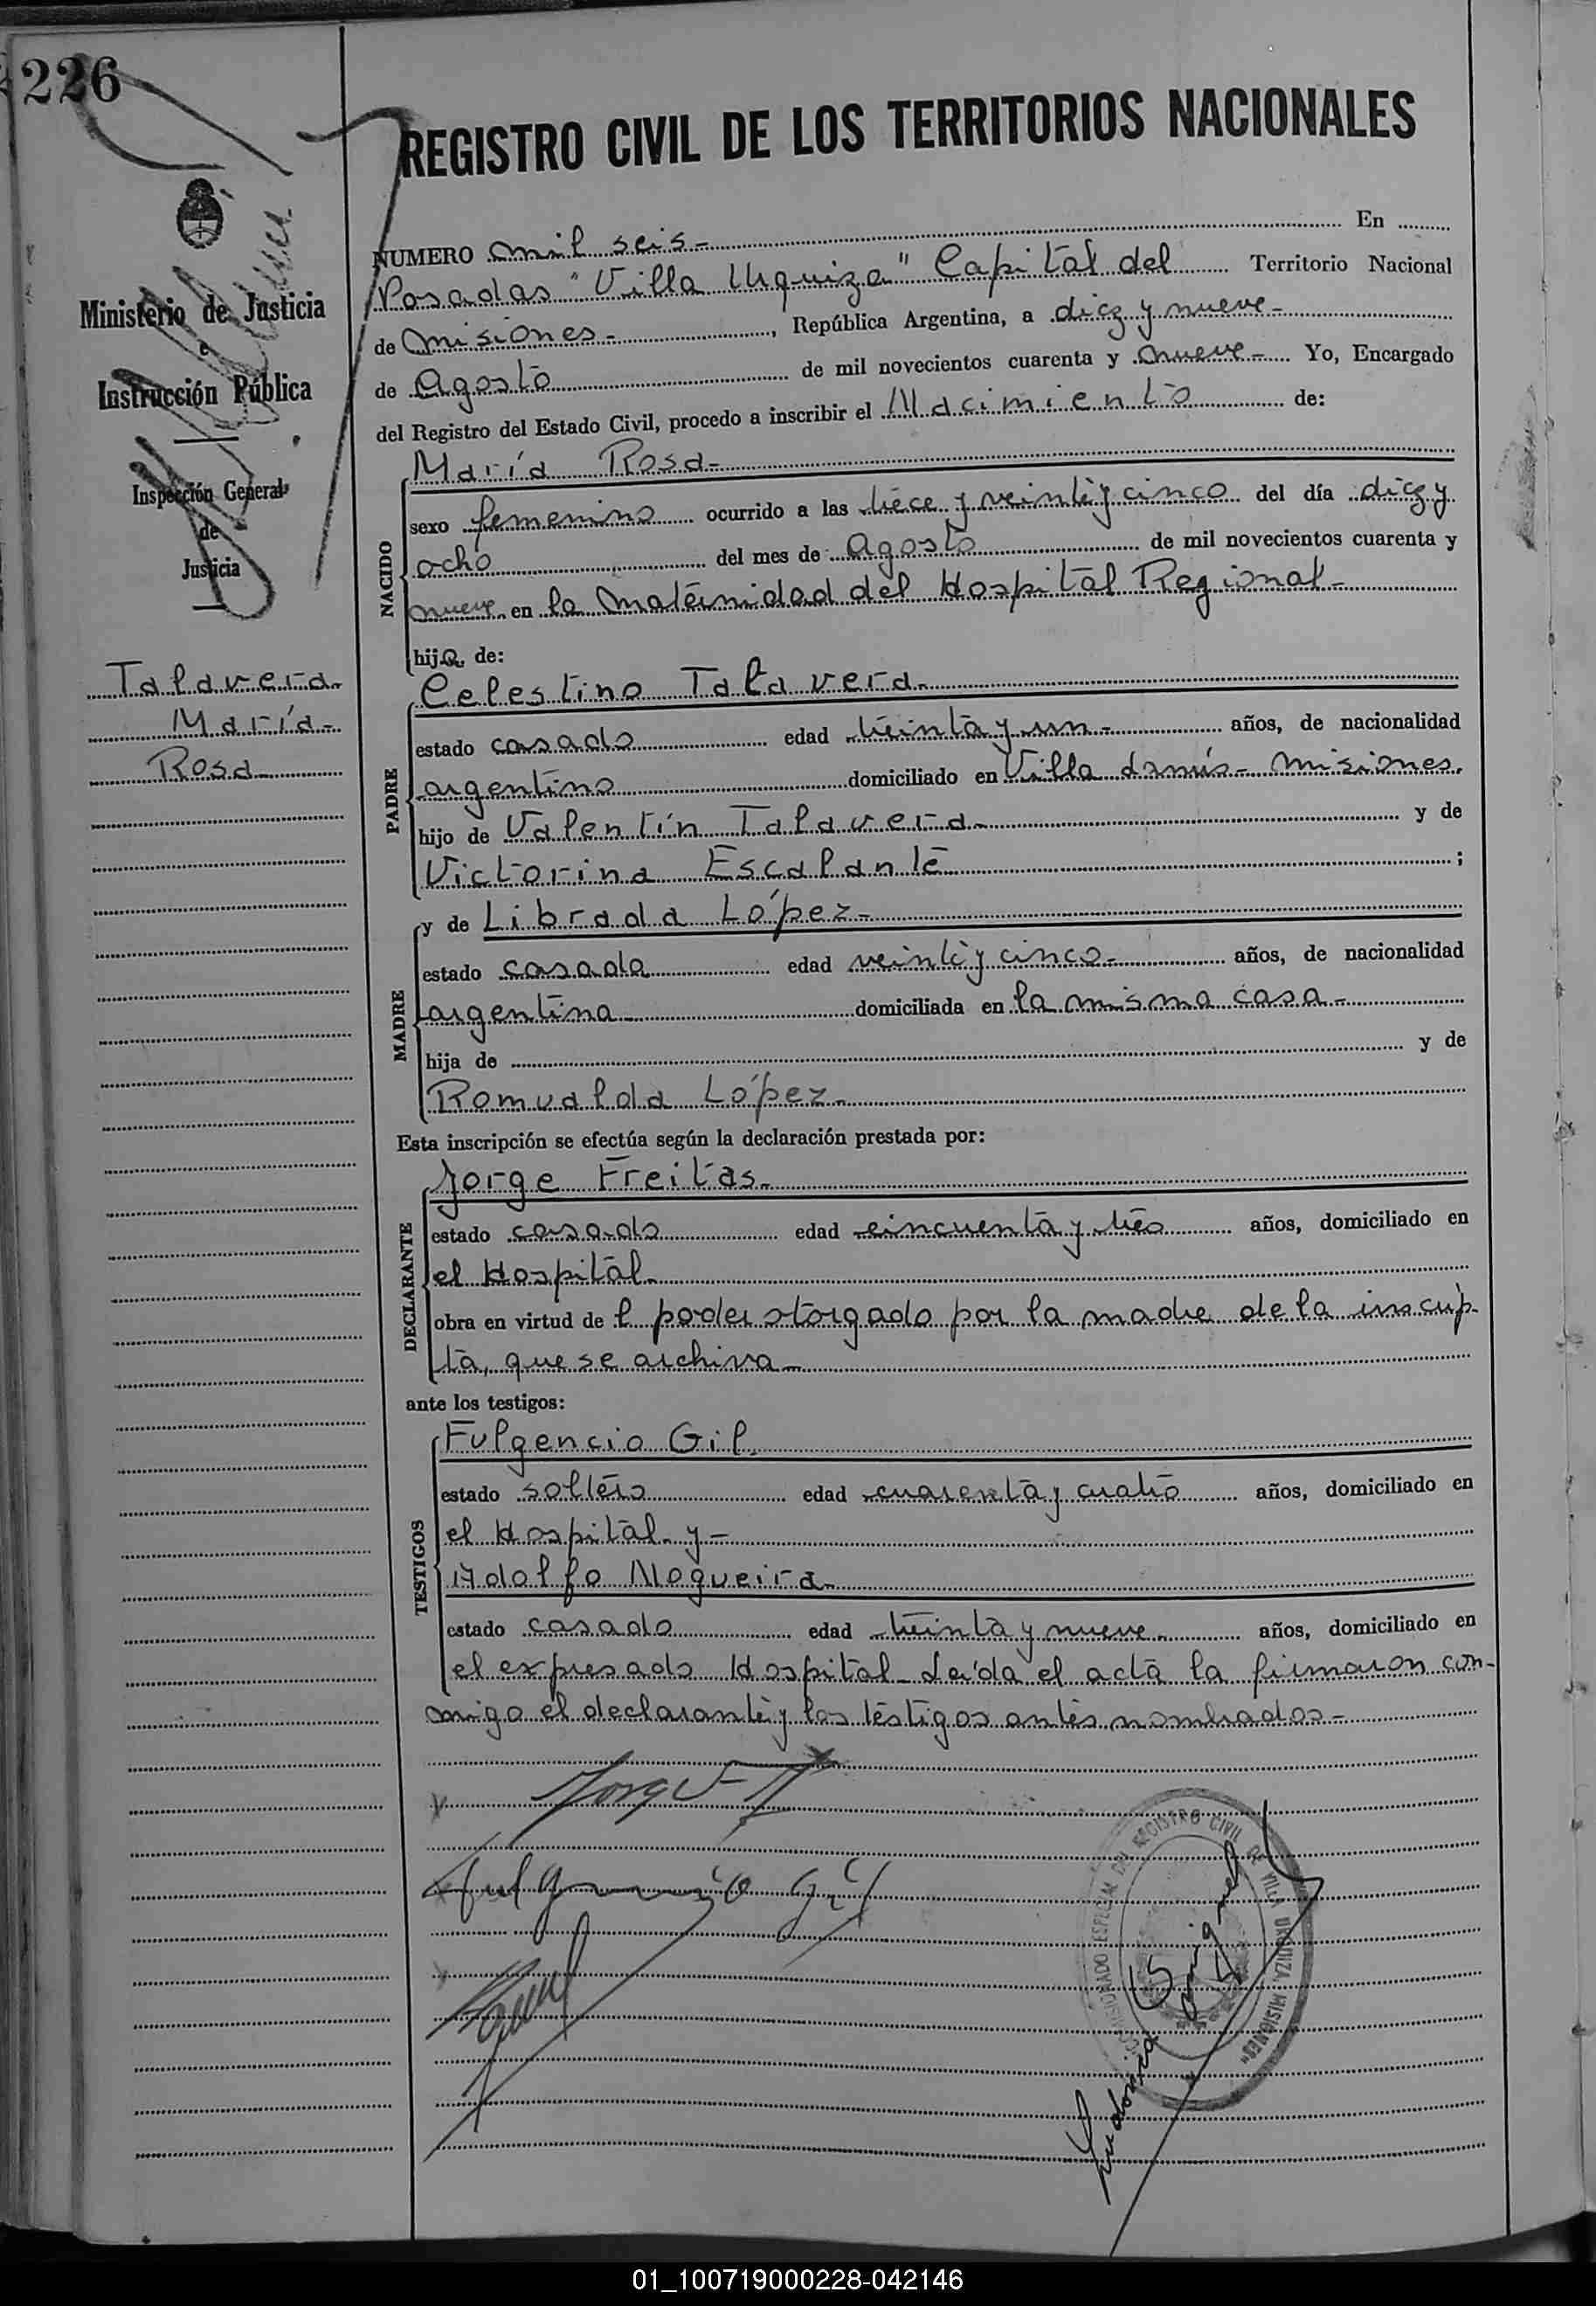 226
REGISTRO CIVIL DE LOS TERRITORIOS NACIONALES
Ministerio de Justicia
e
Instrucción Pública
Inspección General
de
Justicia
Talavera
María
Rosa
NUMERO mil seis- En
Posadas "Villa Urquiza" Capital del Territorio Nacional
de Misiones-, República Argentina, a diez y nueve-
de Agosto de mil novecientos cuarenta y nueve- Yo, Encargado
del Registro del Estado Civil, procedo a inscribir el Nacimiento de:
NACIDO
María Rosa-
sexo femenino ocurrido a las trece y veinte y cinco del día diez y
ocho del mes de Agosto de mil novecientos cuarenta y
nueve en la Maternidad del Hospital Regional-
hija de:
PADRE
Celestino Talavera-
estado casado edad treinta y un- años, de nacionalidad
argentino domiciliado en Villa Lanús- Misiones.
hijo de Valentín Talavera- y de
Victorina Escalante ;
MADRE
y de Librada López-
estado casada edad veinte y cinco- años, de nacionalidad
argentina- domiciliada en la misma casa-
hija de y de
Romualda López-
Esta inscripción se efectúa según la declaración prestada por:
DECLARANTE
Jorge Freitas-
estado casado edad cincuenta y tres años, domiciliado en
el Hospital-
obra en virtud de l poder otorgado por la madre de la inscrip-
ta, que se archiva-
ante los testigos:
TESTIGOS
Fulgencio Gil.
estado soltero edad cuarenta y cuatro años, domiciliado en
el Hospital y-
Adolfo Nogueira-
estado casado edad treinta y nueve- años, domiciliado en
el expresado Hospital- Leída el acta la firmaron con-
migo el declarante y los testigos antes nombrados-
Fulgencio Gil
REGISTRO CIVIL DE VILLA URQUIZA, MISIONES
01_100719000228-042146